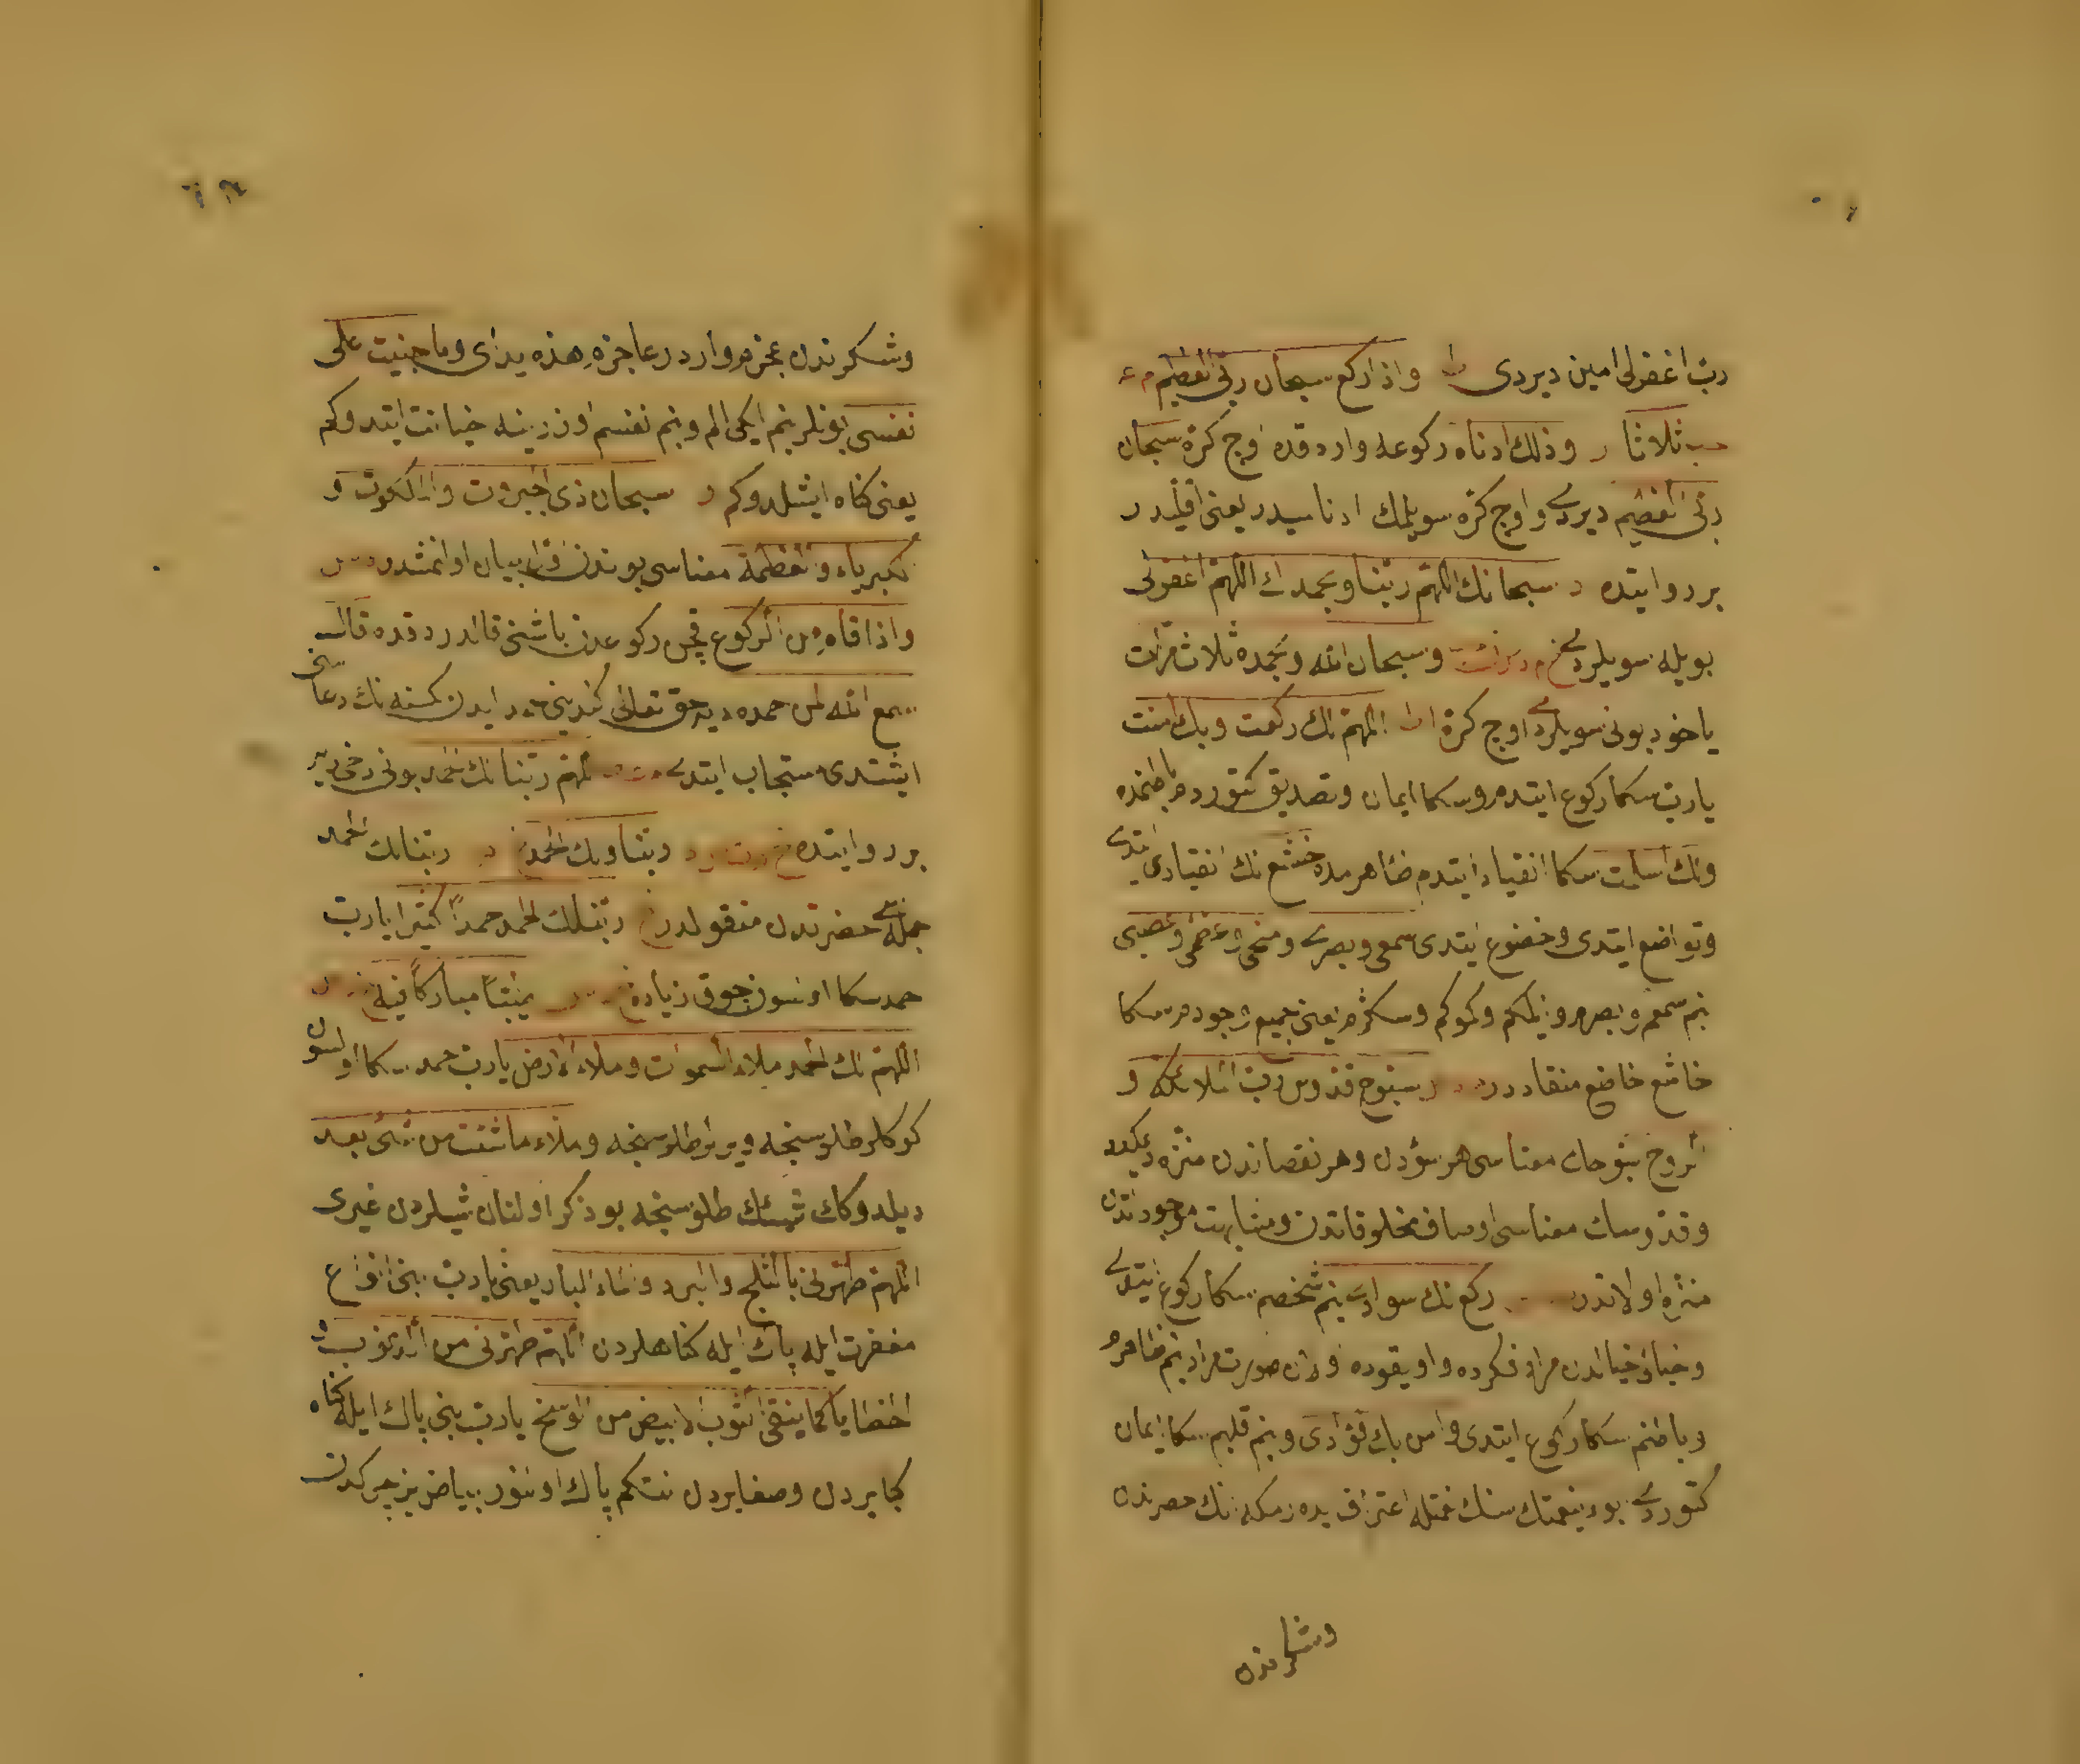 رب اغفرلی امین دیردی ط واذا ركع سبحان ربی العظیم م عه
حب ثلاثا ر وذلك ادناه ركوعه واردقده اوچ كرة سبحان
ربی العظیم دیردی واوچ كره سویلمك ادناسیدر یعنی اقلیدر
بر روایتده د سبحانك اللهم ربنا وبحمدك اللهم اغفرلی
بویله سویلردی خ م د س ق وسبحان الله وبحمده ثلاث مرات
یاخود بونی سویلردی اوچ كرة ا ط اللهم لك ركعت وبك امنت
یارب سكا ركوع ایتدم وسكا ایمان وتصدیق كتوردم باطنمده
ولك اسلمت سكا انقیاد ایتدم ظاهرمده خشع لك انقیاد ایتدی
وتواضع ایتدی وخضوع ایتدی سمعی وبصری ومخی وعظمی وعصبی
بنم سمعم وبصرم وایلكم وكموكم وسكرم یعنی جمیع وجودم سكا
خاشع خاضع منقاددر سبوح قدوس رب الملائكة و
الروح سبوحك معناسی هر سؤدن وهر نقصاندن منزه دیمكدر
وقدوسك معناسی اوصاف مخلوقاتدن ومشابهت موجوداتدن
منزه اولاندر ركع لك سوادی بنم شخصم سكا ركوع ایتدی
وخیالی خیالدن مراد فكرده واویقوده اولان صورت مراد بنم ظاهرم
وباطنم سكا ركوع ایتدی وامن بك فؤادی وبنم قلبم سكا ایمان
كتوردی ابوء بنعمتك سنك نعمتكه اعتراف یدەرمكه انك حصرندن
وشكرندن
وشكرندن عجزم وارد رعاجزم هذه یدای وما جنیت علی
نفسی بونلر بنم ایكی الم وبنم نفسم اوزرینه خیانت ایتدوكم
یعنی كناه ایشلدوكم د سبحان ذی الجبروت والملكوت و
الكبریاء والعظمة معناسی بوندن اول بیان اولنمشدر د س
واذا قام من الركوع قچن ركوعدن باشنی قالدردقده قال
سمع الله لمن حمده دیر حق تعالی كندینه حمد ایدن كمسنه نك دعاسنی
ایشتدی مستجاب ایتدی اللهم ربنا لك الحمد بونی دخی دیر
بر روایتده خ ربنا ولك الحمد خ د ربنا لك الحمد
جمله سی حضرتدن منقولدر خ ربنا لك الحمد حمدا كثیرا یارب
حمد سكا اولسون چوق زیاده طیبا مباركا فیه
اللهم لك الحمد ملاء السموات وملاء الارض یارب حمد سكا اولسون
كوكلر طلوسنجه ویرلر طلوسنجه وملاء ما شئت من شئ بعد
دیلدوكك شیئك طلوسنجه بو ذكر اولنان شیلردن غیری
اللهم طهرنی بالثلج والبرد والماء البارد یعنی یارب بنی انواع
مغفرت ایله پاك ایله كناهلردن اللهم طهرنی من الذنوب و
الخطایا كما ینقی الثوب الابیض من الوسخ یارب بنی پاك ایله كناه
كبایردن وصغایردن نتكم پاك اولنور بیاض بز چركدن